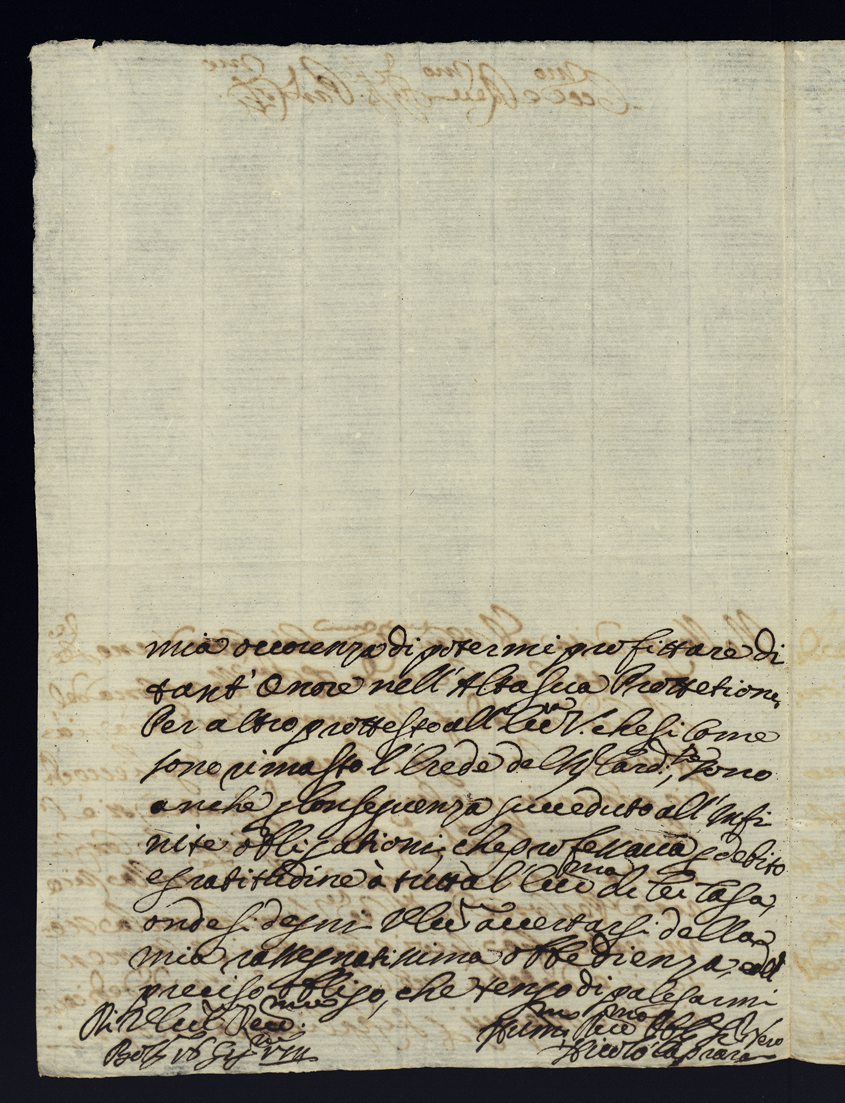 mia occorenza di potermi profittare di
tant' Onore nell'Alta sua Prottetione,
Per altro prottesto all' Ecc.ª V. che si come
sono rimasto l'Erede del Sig.r Card.le, sono
anche p Conseguenza succeduto all'Infi
nite obligationi, che professaua p debito
e gratitudine à tutta l'Ecc.ma di lei Casa,
onde si degni V. Ecc.ª accertarsi della
mia rassegnatissima obbedienza, ed
preciso obligo, che tengo di palesarmi
Di V. Ecc.ª Rev.ma
Bol.ª 16 1711
Hum.mo Obb. Ser. Vero
Nicolò Caprara